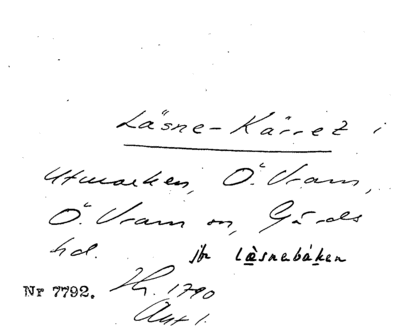 Läsne-Kärret i
utmarken, Ö. Vram,
Ö. Vram sn, Gärds
hd. jfr läsnebaken
Nr 7792. 1790